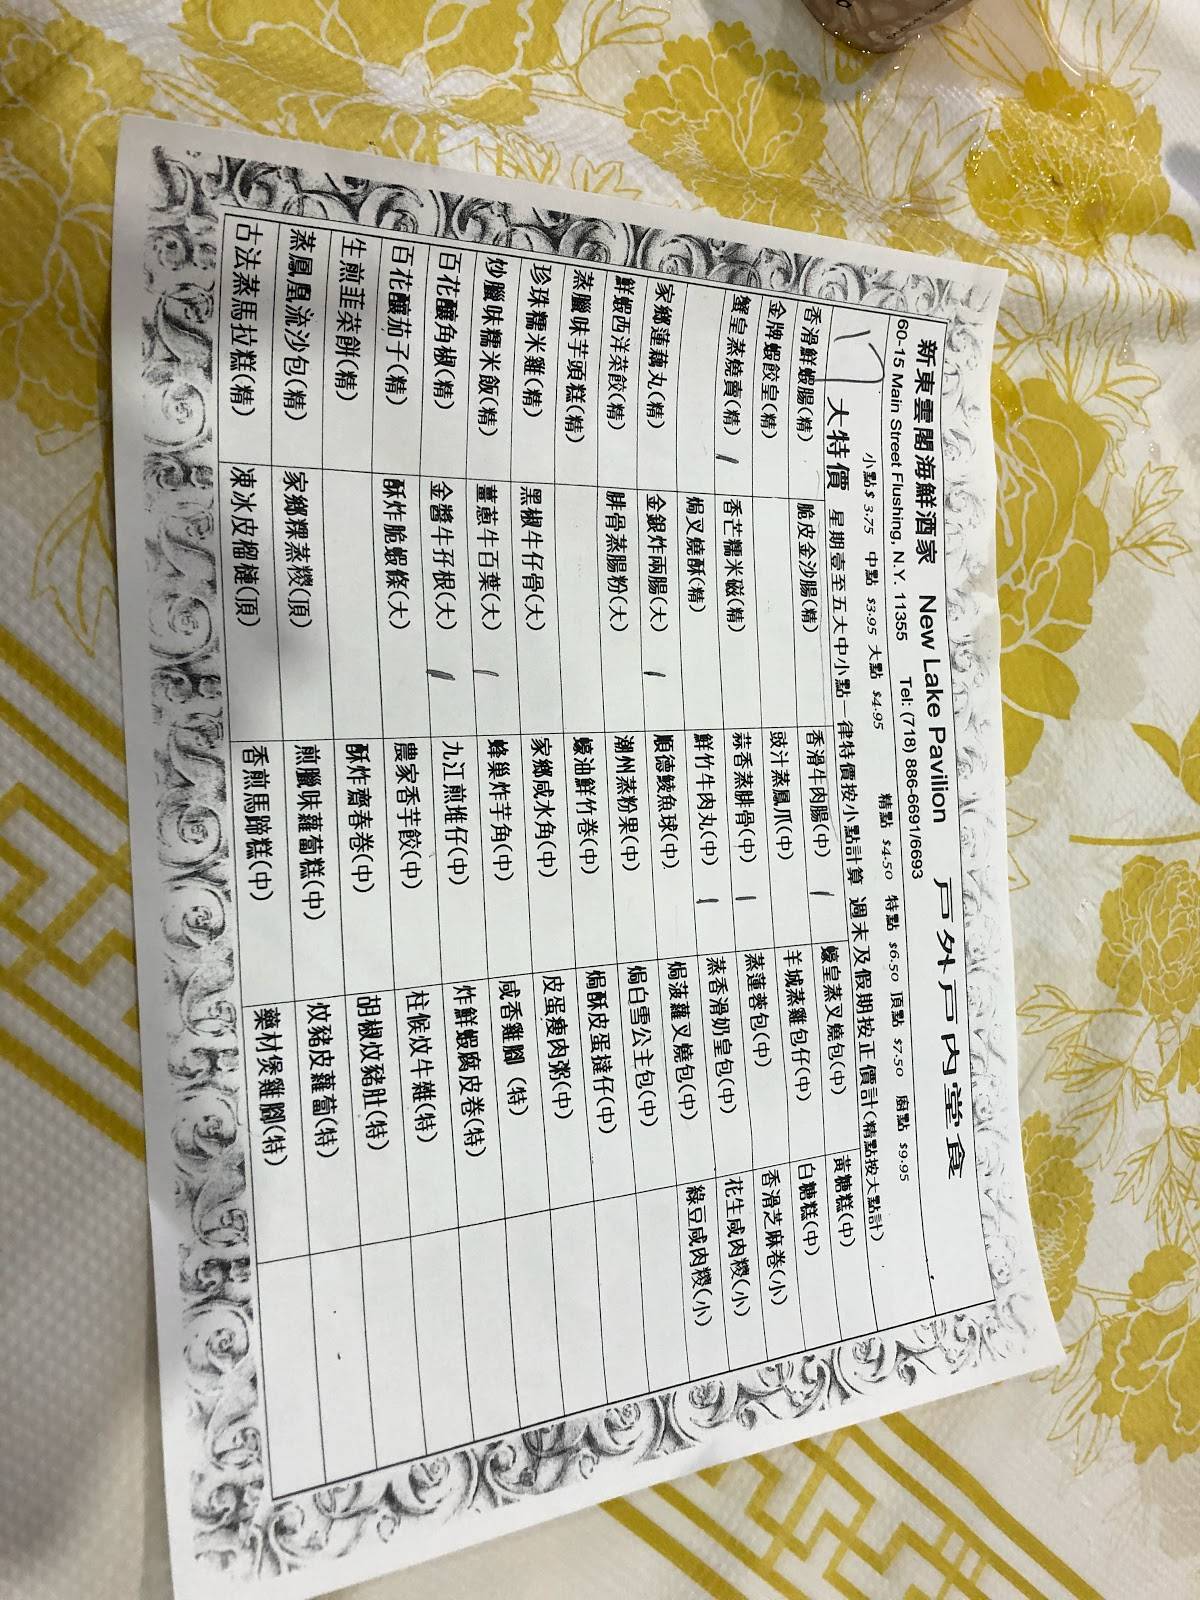 新東雲閣海鮮酒家 New Lake Pavilion 戶外戶內堂食
60-15 Main Street Flushing, N.Y. 11355 Tel: (718) 886-6691/6693
小點$ 3.75 中點 $3.95 大點 $4.95 精點 $4.50 特點 $6.50 頂點 $7.50 廚點 $9.95
17 大特價 星期壹至五大中小點一律特價按小點計算 週末及假期按正價計(精點按大點計)
香滑鮮蝦腸(精) 脆皮金沙腸(精) 香滑牛肉腸(中) 1 蠔皇蒸叉燒包(中) 黃糖糕(中)
金牌蝦餃皇(精) 豉汁蒸鳳爪(中) 羊城蒸雞包仔(中) 白糖糕(中)
蟹皇蒸燒賣(精) 1 香芒糯米磁(精) 蒜香蒸腓骨(中) 1 蒸蓮蓉包(中) 香滑芝麻卷(小)
焗叉燒酥(精) 鮮竹牛肉丸(中) 1 蒸香滑奶皇包(中) 花生咸肉糉(小)
家鄉蓮藕丸(精) 金銀炸兩腸(大) 1 順德鯪魚球(中) 焗菠蘿叉燒包(中) 綠豆咸肉糉(小)
鮮蝦西洋菜餃(精) 腓骨蒸腸粉(大) 潮州蒸粉果(中) 焗白雪公主包(中)
蒸臘味芋頭糕(精) 蠔油鮮竹卷(中) 焗酥皮蛋撻仔(中)
珍珠糯米雞(精) 黑椒牛仔骨(大) 家鄉咸水角(中) 皮蛋瘦肉粥(中)
炒臘味糯米飯(精) 薑蔥牛百葉(大) 1 蜂巢炸芋角(中) 咸香雞腳(特)
百花釀角椒(精) 金醬牛孖根(大) 1 九江煎堆仔(中) 炸鮮蝦腐皮卷(特)
百花釀茄子(精) 酥炸脆蝦條(大) 農家香芋餃(中) 柱候炆牛雜(特)
生煎韭菜餅(精) 酥炸齋春卷(中) 胡椒炆豬肚(特)
蒸鳳凰流沙包(精) 家鄉粿蒸糉(頂) 煎臘味蘿蔔糕(中) 炆豬皮蘿蔔(特)
古法蒸馬拉糕(精) 凍冰皮榴槤(頂) 香煎馬蹄糕(中) 藥材煲雞腳(特)